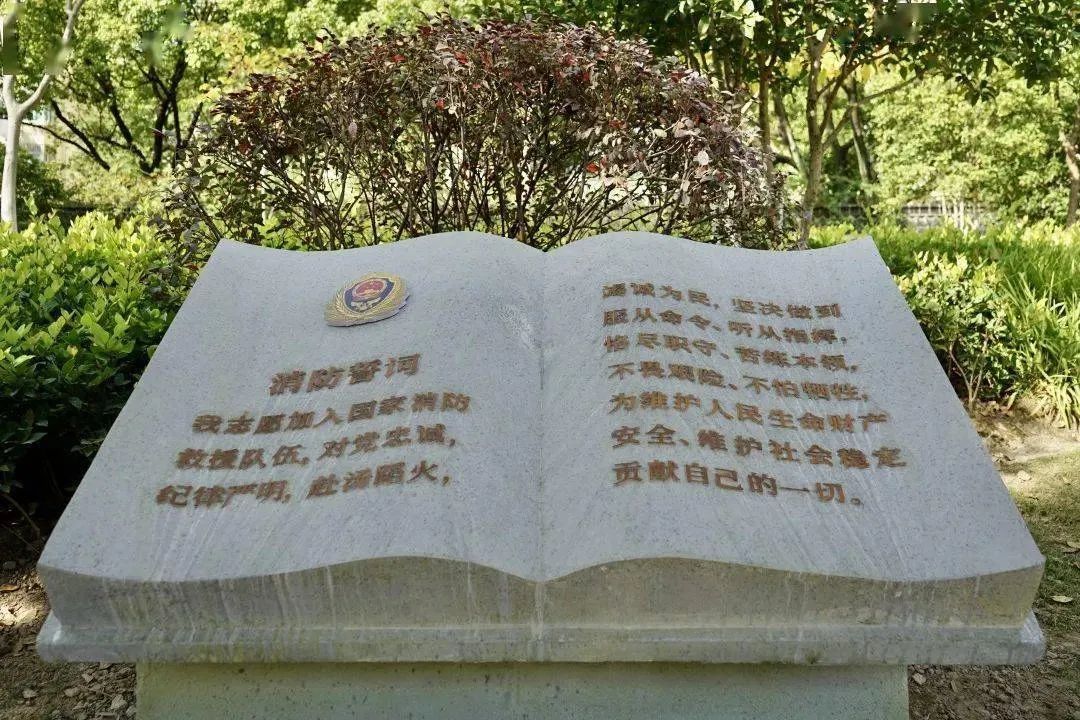 消防誓词
我志愿加入国家消防
救援队伍，对党忠诚，
纪律严明，赴汤蹈火，
竭诚为民，坚决做到
服从命令、听从指挥，
恪尽职守、苦练本领，
不畏艰险、不怕牺牲，
为维护人民生命财产
安全、维护社会稳定
贡献自己的一切。